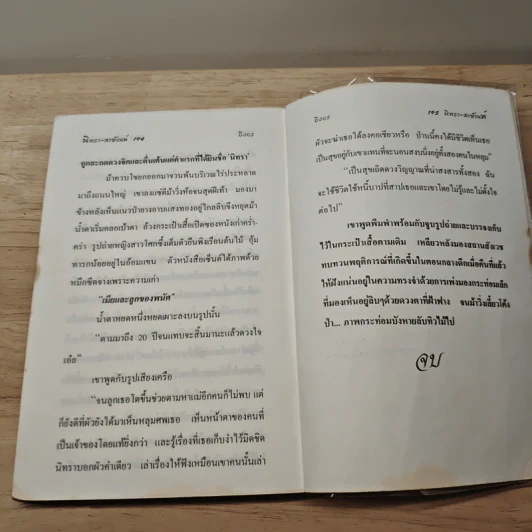 นิทรา-สายัณห์ 194
อิงอร
ถูกสะกดดวงจิตและตื่นเต้นแต่คำแรกที่ได้ยินชื่อ 'นิทรา'
ม้าควบโขยกออกมาจวนพ้นบริเวณไร่ประหลาด
มาถึงถนนใหญ่ เขาลงแซ่ตีม้าวิ่งห้อจนสุดฝีเท้า มองมา
ข้างหลังเห็นแนวป่ายางอาบแสงทองอยู่ใกล้ลิบจึงหยุดม้า
น้ำตาเริ่มคลอเบ้าตา ล้วงกระเป๋าเสื้อเปิดซองหนังเก่าคร่ำ-
คร่า รูปถ่ายหญิงสาวโศกซึ้งเต็มตัวยืนพิงเรือนต้นไม้ อุ้ม
ทารกน้อยอยู่ในอ้อมแขน ตัวหนังสือเซ็นต์ใต้ภาพด้วย
หมึกซีดจางเพราะความเก่า
"เมียและลูกของพนัศ"
น้ำตาหยดหนึ่งหยดเผาะลงบนรูปนั้น
"ตามมาถึง 20 ปีจนแทบจะสิ้นมานะแล้วดวงใจ
เอ๋ย"
เขาพูดกับรูปเสียงเครือ
"จนลูกเธอโตขึ้นช่วยตามหาแม่อีกคนก็ไม่พบ แต่
ก็ยังดีที่ผัวยังได้มาเห็นหลุมศพเธอ เห็นหน้าตาของคนที่
เป็นเจ้าของโดยแท้ยิ่งกว่า และรู้เรื่องที่เธอเก็บงำไว้มิดชิด
นิทราบอกผัวคำเดียว เล่าเรื่องให้ฟังเหมือนเขาคนนั้นเล่า
195 นิทรา-สายัณห์
อิงอร
ผัวจะฆ่าเธอได้ลงคอเชียวหรือ ป่านนี้คงได้มีชีวิตเห็นเธอ
เป็นสุขอยู่กับเขาแทนที่จะนอนสงบนิ่งอยู่ทั้งสองคนในหลุม"
"เป็นสุขเถิดดวงวิญญาณที่น่าสงสารทั้งสอง ฉัน
จะใช้ชีวิตใช้หนี้บาปที่สาปเธอและเขาโดยไม่รู้และไม่ตั้งใจ
ต่อไป"
เขาพูดพึมพำพร้อมกับจูบรูปถ่ายและบรรจงเก็บ
ไว้ในกระเป๋าเสื้อตามเดิม เหลียวหลังมองสถานสังเวช
ทบทวนพฤติการณ์ที่เกิดขึ้นในตอนกลางดึกเมื่อคืนที่แล้ว
ให้ฝังแน่นอยู่ในความทรงจำด้วยการเพ่งมองกระท่อมเล็ก
ที่มองเห็นอยู่ลิบๆด้วยดวงตาที่ฝ้าฟาง จนม้าวิ่งเลี้ยวโค้ง
ป่า... ภาพกระท่อมบังหายลับทิวไม้ไป
จบ